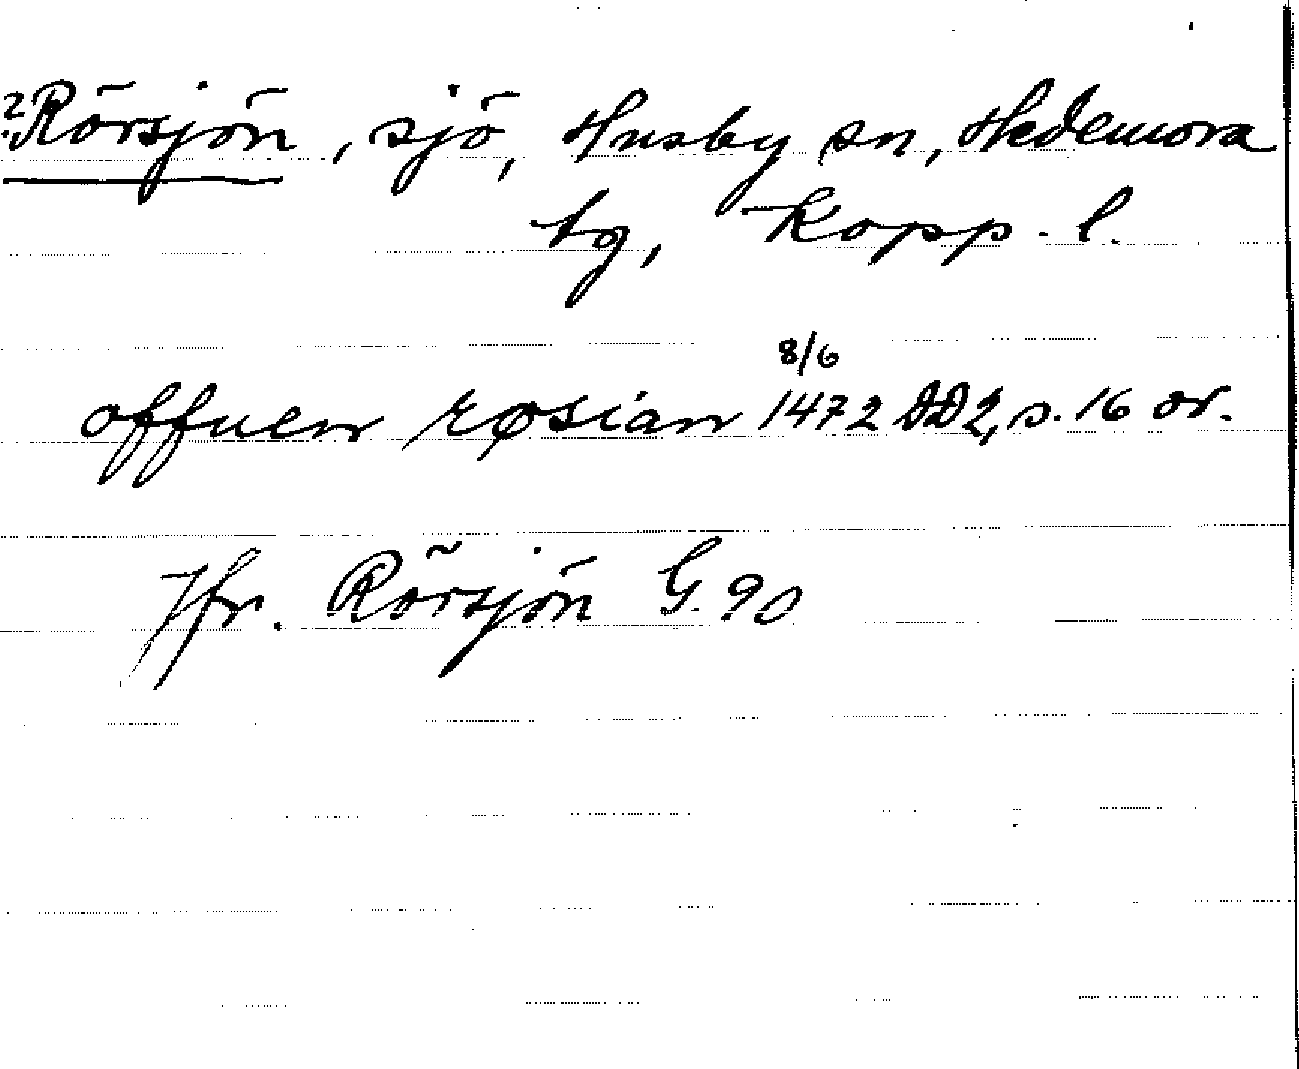 ? Rörsjön, sjö, Husby sn, Hedemora
tg, Kopp. l.
8/6
offuen røsian 1472 DD2, s. 16 or.
Jfr. Rörsjön G. 90